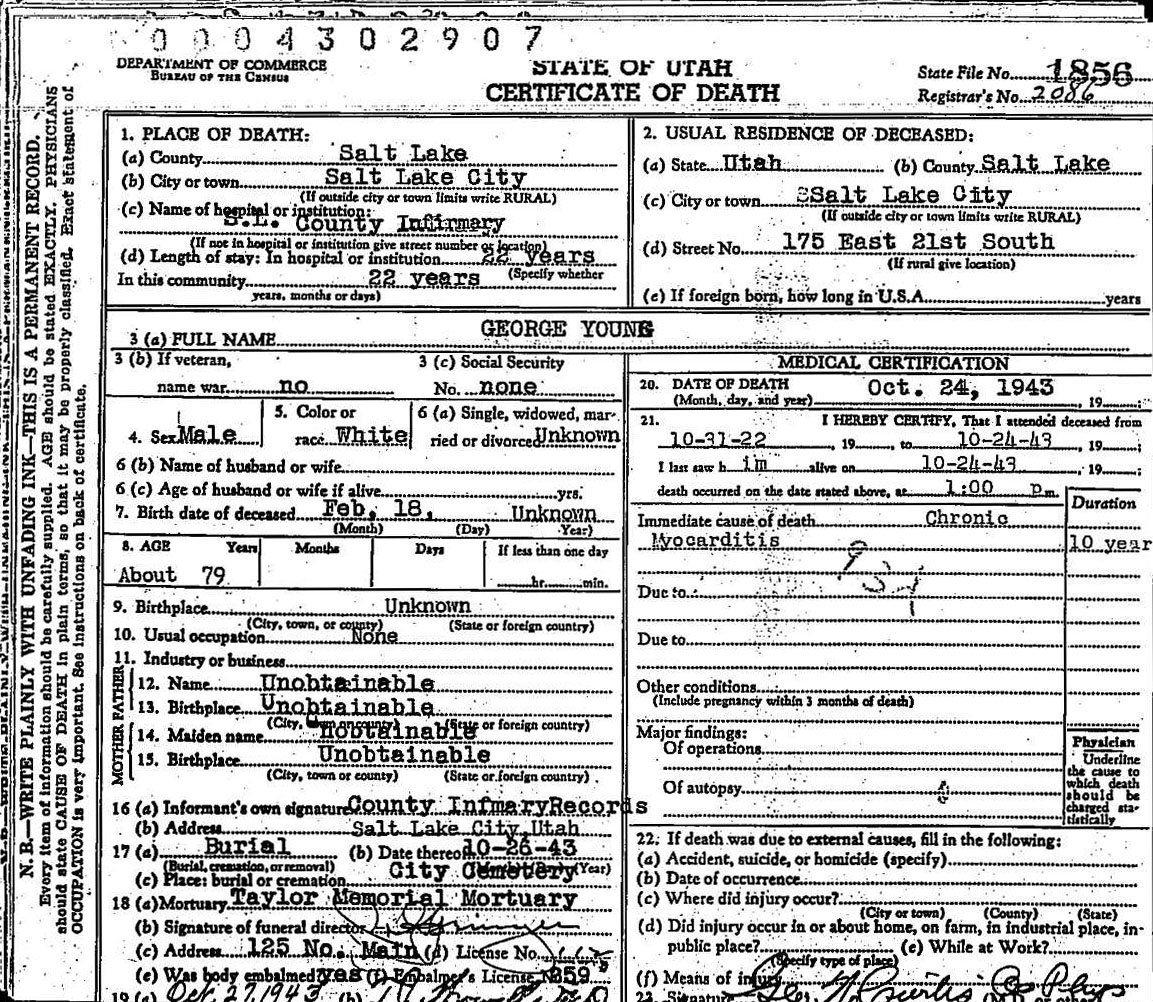 0004302907
DEPARTMENT OF COMMERCE
BUREAU OF THE CENSUS
STATE OF UTAH
CERTIFICATE OF DEATH
State File No. 1856
Registrar's No. 2086
N. B.—WRITE PLAINLY WITH UNFADING INK—THIS IS A PERMANENT RECORD.
Every item of information should be carefully supplied. AGE should be stated EXACTLY. PHYSICIANS
should state CAUSE OF DEATH in plain terms, so that it may be properly classified. Exact statement of
OCCUPATION is very important. See instructions on back of certificate.
1. PLACE OF DEATH:
(a) County Salt Lake
(b) City or town Salt Lake City
(If outside city or town limits write RURAL)
(c) Name of hospital or institution:
S.L. County Infirmary
(If not in hospital or institution give street number or location)
(d) Length of stay: In hospital or institution 22 years
(Specify whether
In this community 22 years
years, months or days)
2. USUAL RESIDENCE OF DECEASED:
(a) State Utah (b) County Salt Lake
(c) City or town SSalt Lake City
(If outside city or town limits write RURAL)
(d) Street No. 175 East 21st South
(If rural give location)
(e) If foreign born, how long in U.S.A. years
3 (a) FULL NAME GEORGE YOUNG
3 (b) If veteran, 3 (c) Social Security
name war no No. none
4. Sex Male 5. Color or race White 6 (a) Single, widowed, married or divorced Unknown
6 (b) Name of husband or wife
6 (c) Age of husband or wife if alive yrs.
7. Birth date of deceased Feb, 18, Unknown
(Month) (Day) Year)
8. AGE Years Months Days If less than one day
About 79 hr. min.
9. Birthplace Unknown
(City, town, or county) (State or foreign country)
10. Usual occupation None
11. Industry or business
FATHER
12. Name Unobtainable
13. Birthplace Unobtainable
(City, town or county) (State or foreign country)
MOTHER
14. Maiden name nobtainable
15. Birthplace Unobtainable
(City, town or county) (State or foreign country)
16 (a) Informant's own signature County InfmaryRecords
(b) Address Salt Lake City, Utah
17 (a) Burial (b) Date thereof 10-26-43
(Burial, cremation, or removal) (Year)
(c) Place: burial or cremation City Cemetery
18 (a) Mortuary Taylor Memorial Mortuary
(b) Signature of funeral director
(c) Address 125 No. Main (d) License No.
(e) Was body embalmed yes (f) Embalmer's License N 359
19 (a) Oct. 27, 1943 (b)
MEDICAL CERTIFICATION
20. DATE OF DEATH Oct. 24, 1943
(Month, day, and year) , 19
21. I HEREBY CERTIFY, That I attended deceased from
10-31-22 , 19 to 10-24-43 , 19 ;
I last saw h im alive on 10-24-43 , 19 ;
death occurred on the date stated above, at 1:00 p m.
Duration
Immediate cause of death Chronic
Myocarditis 10 year
Due to
Due to
Other conditions
(Include pregnancy within 3 months of death)
Major findings:
Of operations
Of autopsy
Physician
Underline
the cause to
which death
should be
charged sta-
tistically
22. If death was due to external causes, fill in the following:
(a) Accident, suicide, or homicide (specify)
(b) Date of occurrence
(c) Where did injury occur?
(City or town) (County) (State)
(d) Did injury occur in or about home, on farm, in industrial place, in-
public place? (e) While at Work?
(Specify type of place)
(f) Means of injury
23. Signature